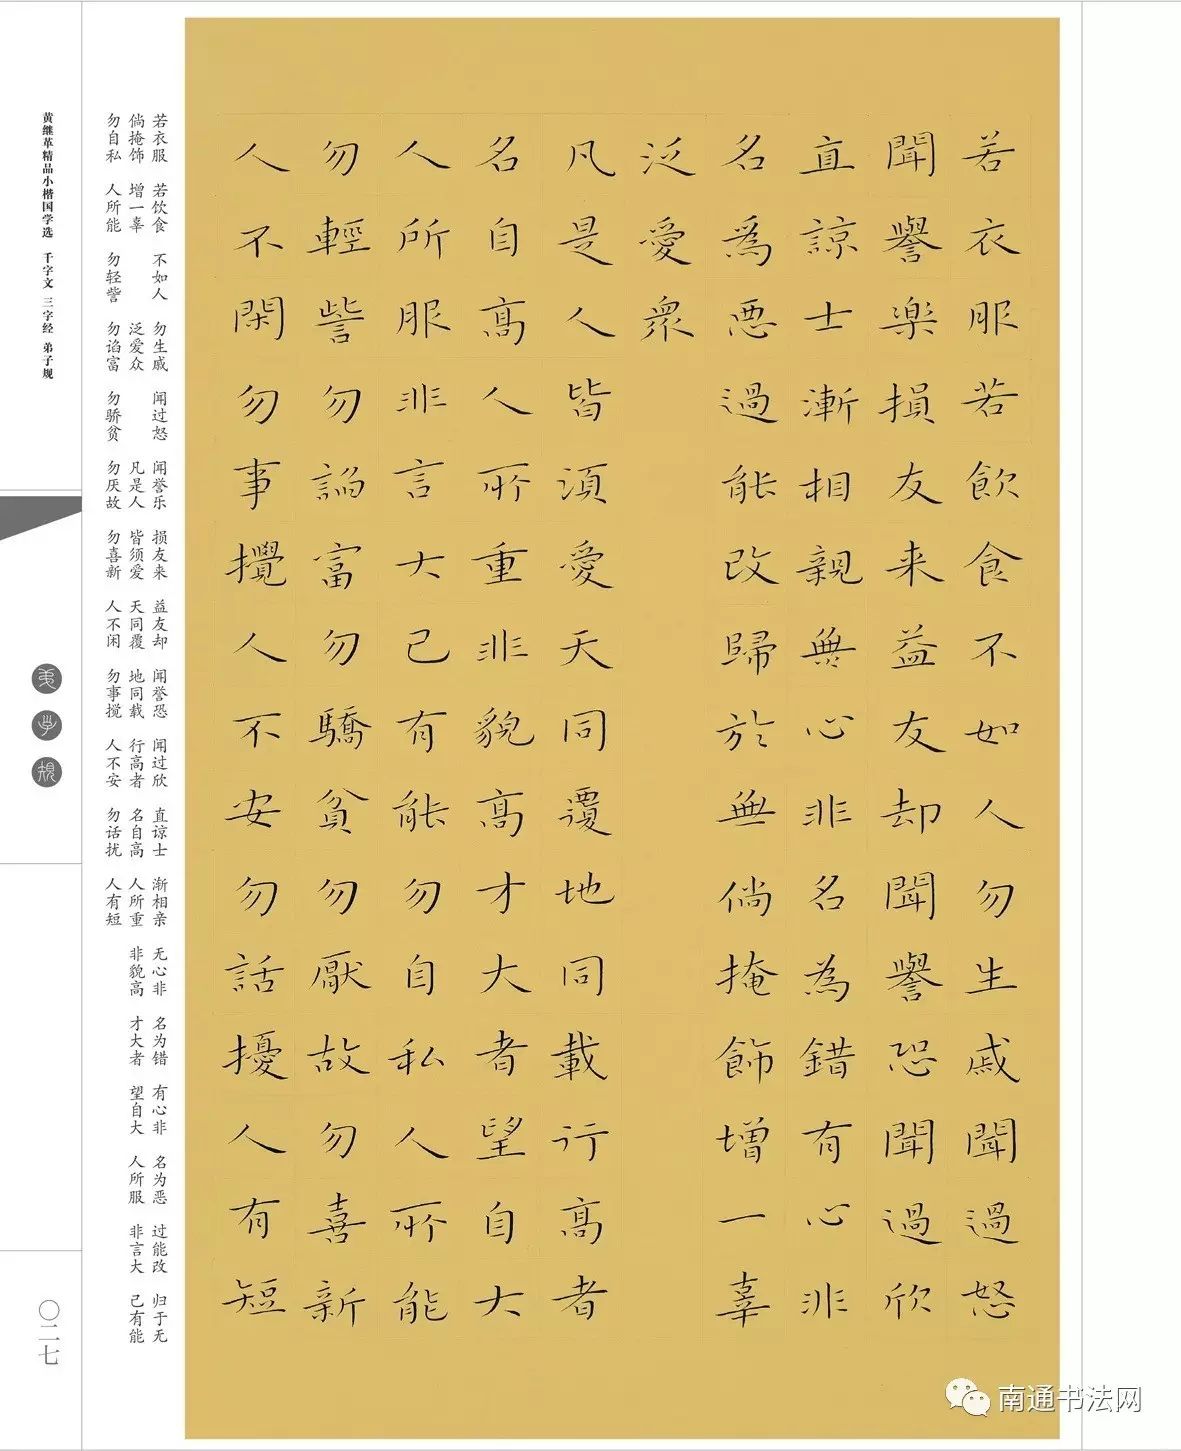 若衣服若飲食不如人勿生戚聞過怒
聞譽樂損友来益友却聞譽恐聞過欣
直諒士漸相親無心非名為錯有心非
名爲惡過能改歸於無倘掩飾增一辜
泛愛眾
凡是人皆須愛天同覆地同載行高者
名自高人所重非貌高才大者望自大
人所服非言大己有能勿自私人所能
勿輕訾勿諂富勿驕貧勿厭故勿喜新
人不閑勿事攪人不安勿話擾人有短
若衣服 若饮食 不如人 勿生戚 闻过怒 闻誉乐 损友来 益友却 闻誉恐 闻过欣 直谅士 渐相亲 无心非 名为错 有心非 名为恶 过能改 归于无
倘掩饰 增一辜 泛爱众 凡是人 皆须爱 天同覆 地同载 行高者 名自高 人所重 非貌高 才大者 望自大 人所服 非言大 己有能
勿自私 人所能 勿轻訾 勿谄富 勿骄贫 勿厌故 勿喜新 人不闲 勿事搅 人不安 勿话扰 人有短
黄继革精品小楷国学选 千字文 三字经 弟子规
弟子规
〇二七
南通书法网